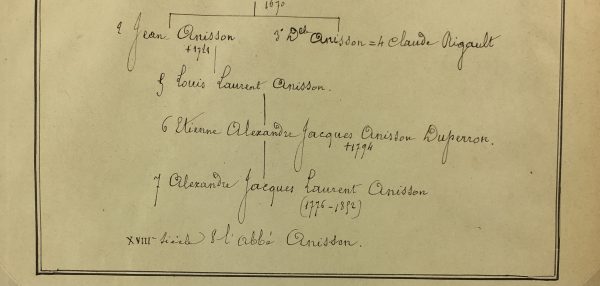 1670
2 Jean Anisson 3° Dlle Anisson = 4 Claude Rigault
+1721
5 Louis Laurent Anisson.
6 Etienne Alexandre Jacques Anisson Duperron.
+1794
7 Alexandre Jacques Laurent Anisson
(1776-1852)
XVIIIe siècle 8 l'abbé Anisson.